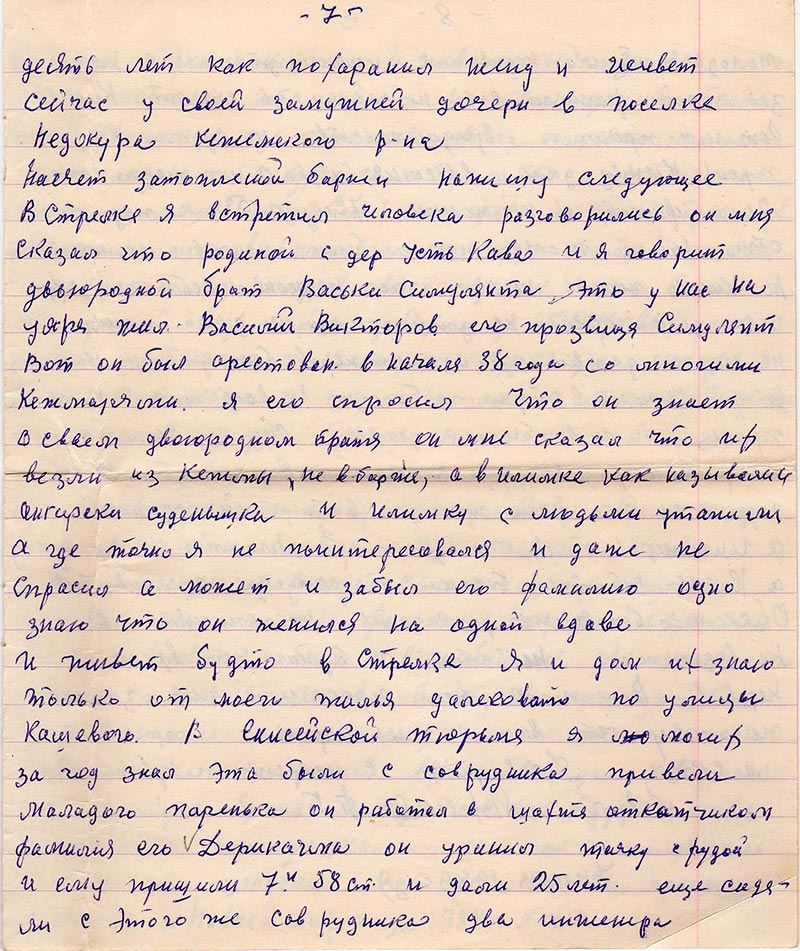 - 7 -
десять лет как похаранил жену и живет
сейчас у своей замужней дочери в поселке
Недокура Кежемского р-на
Насчет затопленой баржи напишу следующее
В Стрелке я встретил человека разговорились он мня
сказал что родиной с дер Усть Кава и я говорит
двоюродной брат Васьки Симулянта Это у нас на
уфря жил. Василий Викторов его прозвища Симулянт
Вот он был арестован в начале 38 года со многими
Кежмарями. Я его спросил Что он знает
о своем двоюродном братя он мне сказал что их
везли из Кежмы, не в баржи, а в илимке как называли
Ангарски суденышка и илимку с людьми утапили
А где точно я не поинтересовался и даже не
спрасил а может и забыл его фамилию одно
знаю что он женился на одной вдове
и живет будто в Стрелке я и дом их знаю
только от моего жилья далековато по улицы
Кашевого. В Енисейской тюрьмя я многих
за год знал эта были с соврудника привели
маладого паренька он работал в шахтя откатчиком
фамилия его Дерикачма он уранил тачку с рудой
и ему пришили 7й 58 ст. и дали 25 лет. еще сиде-
ли с этого же соврудника два инженера